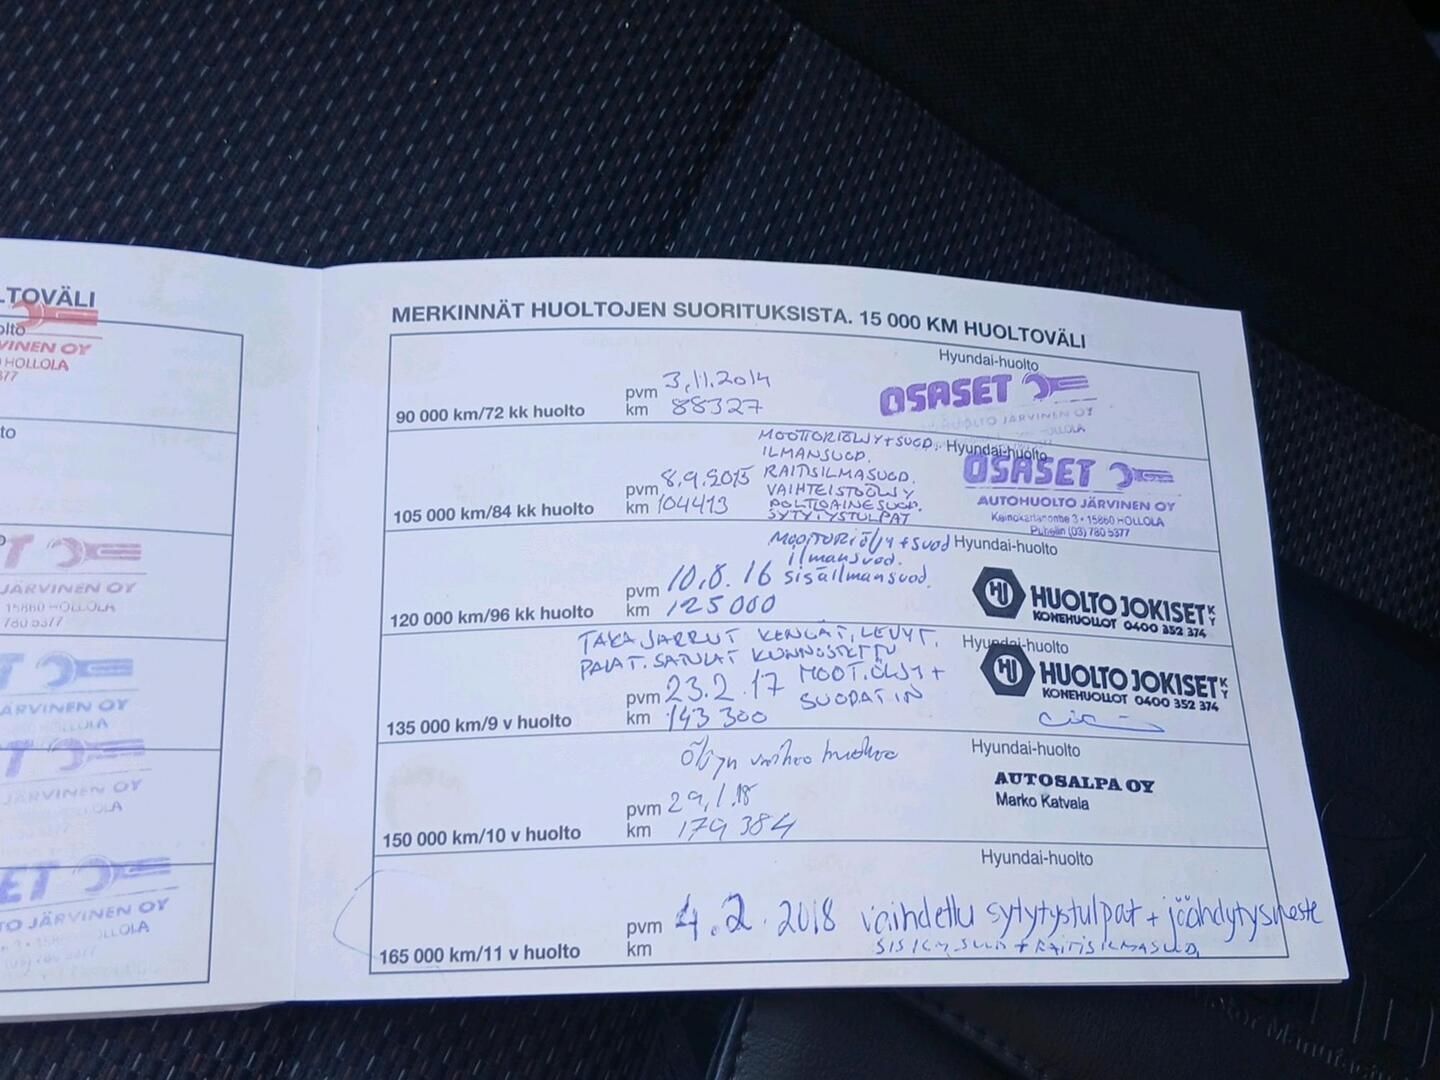 TOVÄLI
olto
VINEN OY
HOLLOLA
377
to
JÄRVINEN OY
15860 HOLLOLA
780 5377
ÄRVINEN OY
ÄRVINEN OY
ET
TO JÄRVINEN OY
(03) 780 5377
MERKINNÄT HUOLTOJEN SUORITUKSISTA. 15 000 KM HUOLTOVÄLI
Hyundai-huolto
90 000 km/72 kk huolto
pvm 3.11.2014
km 88327
OSASET
HUOLTO JÄRVINEN OY
HOLLOLA
Hyundai-huolto
105 000 km/84 kk huolto
pvm 8.9.2015
km 104413
MOOTTORIÖLJY+SUOD.
ILMANSUOD.
RAITISILMASUOD.
VAIHTEISTOÖLJY
POLTTOAINESUOD.
SYTYTYSTULPAT
OSASET
AUTOHUOLTO JÄRVINEN OY
15860 HOLLOLA
Puhelin (03) 780 5377
Hyundai-huolto
120 000 km/96 kk huolto
Moottoriöljy+suod
ilmansuod.
sisäilmansuod.
pvm 10.8.16
km 125000
HUOLTO JOKISET KY
KONEHUOLLOT 0400 352 374
Hyundai-huolto
135 000 km/9 v huolto
TAKAJARRUT KENGÄT, LEVYT,
PALAT. SATULAT KUNNOSTETTU
MOOT.ÖLJY+
SUODATIN
pvm 23.2.17
km 143 300
HUOLTO JOKISET KY
KONEHUOLLOT 0400 352 374
Hyundai-huolto
150 000 km/10 v huolto
Öljyn vaihto huolto
pvm 29.1.18
km 179 384
AUTOSALPA OY
Marko Katvala
Hyundai-huolto
165 000 km/11 v huolto
pvm 4.2.2018 vaihdettu sytytystulpat + jäähdytysneste
km
+ RAITISILMASUOD.